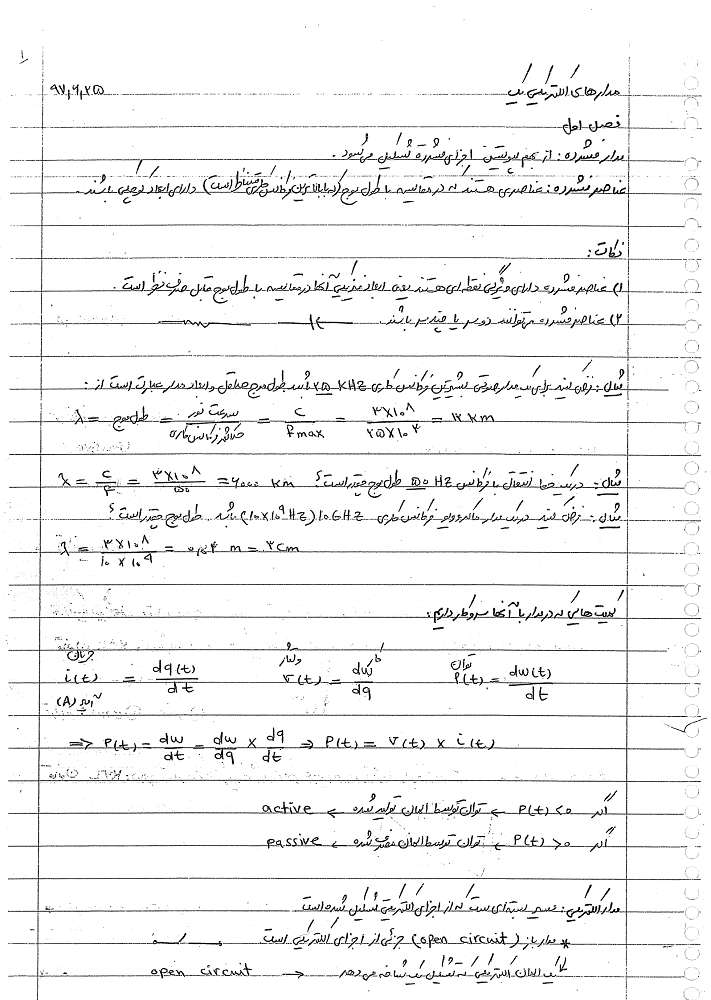 ۱
مدارهای الکتریکی یک ۹۷,۶,۲۵
فصل اول
مدار فشرده : از بهم پیوستن اجزای فشرده تشکیل می‌شود .
عناصر فشرده : عناصری هستند که در مقایسه با طول موج (که با بالاترین فرکانس کاری متناظر است) دارای ابعاد کوچکی باشند .
نکات :
۱) عناصر فشرده دارای ویژگی نقطه‌ای هستند یعنی ابعاد فیزیکی آنها در مقایسه با طول موج قابل صرف نظر است .
۲) عناصر فشرده می‌توانند دو سر یا چند سر باشند .
مثال : فرض کنید برای یک مدار صوتی بیشترین فرکانس کاری ۲۵ KHz باشد طول موج حداقل و ابعاد مدار عبارت است از :
λ = طول موج = سرعت نور / حداکثر فرکانس کاری = C / fmax = ۳×۱۰^۸ / ۲۵×۱۰^۳ = ۱۲ Km
مثال : در یک خط انتقال با فرکانس ۵۰ Hz طول موج چقدر است؟ λ = C / f = ۳×۱۰^۸ / ۵۰ = ۶۰۰۰ km
مثال : فرض کنید در یک مدار ماکروویو فرکانس کاری 10 GHz (۱۰×۱۰^۹ Hz) باشد طول موج چقدر است؟
λ = ۳×۱۰^۸ / ۱۰×۱۰^۹ = ۰٫۰۳ m = ۳ cm
کمیت هایی که در مدار با آنها سر و کار داریم :
جریان ولتاژ کار توان
i(t) = dq(t) / dt v(t) = dw / dq P(t) = dw(t) / dt
آمپر (A)
⇒ P(t) = dw / dt = dw / dq × dq / dt ⇒ P(t) = v(t) × i(t)
اگر P(t) < ۰ ← توان توسط المان تولید شده ← active
اگر P(t) > ۰ ← توان توسط المان مصرف شده ← passive
مدار الکتریکی : مسیر بسته‌ای است که از اجزای الکتریکی تشکیل شده است
* مدار باز (open circuit) جزئی از اجزای الکتریکی است
یک المان الکتریکی که تشکیل یک شاخه می‌دهد → open circuit